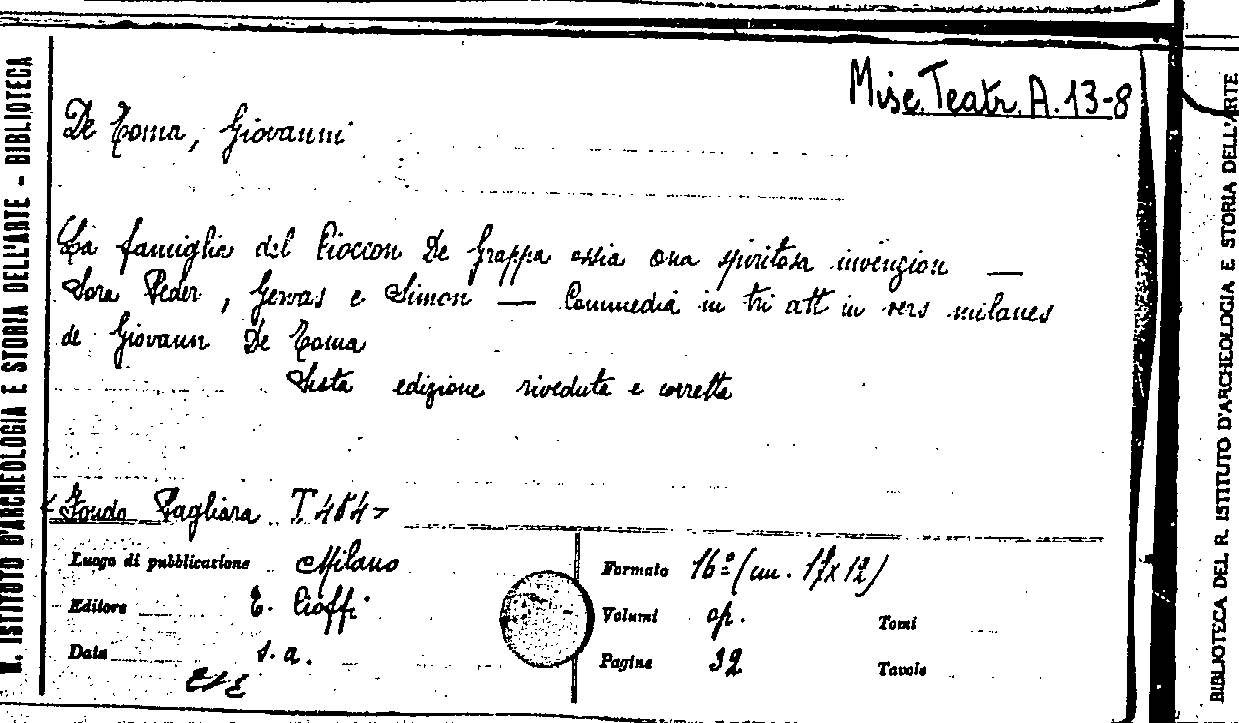 R. ISTITUTO D'ARCHEOLOGIA E STORIA DELL'ARTE - BIBLIOTECA
Misc. Teatr. A. 13-8
De Toma, Giovanni
La famiglia del Cioccon De Grappa ossia ona spiritosa invenzion —
Sora Peder, Gervas e Simon — Commedia in tri att in vers milanes
de Giovann De Toma
Sesta edizione riveduta e corretta
<Fondo Pagliara T. 464>
Luogo di pubblicazione Milano
Editore E. Cioffi
Data s. a.
Formato 16º (cm. 17x12)
Volumi op. Tomi
Pagine 32 Tavole
BIBLIOTECA DEL R. ISTITUTO D'ARCHEOLOGIA E STORIA DELL'ARTE